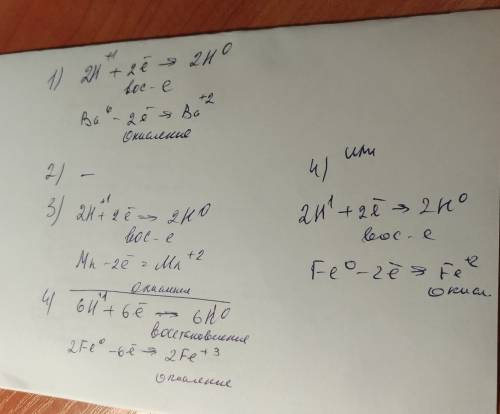 1) 2H⁺¹ + 2ē → 2H⁰
вос-е
Ba⁰ - 2ē → Ba⁺²
Окисление
2) –
3) 2H⁺¹ + 2ē → 2H⁰
вос-е
Mn - 2ē = Mn⁺²
окисления
4) 6H⁺¹ + 6ē → 6H⁰
восстановление
2Fe⁰ - 6ē → 2Fe⁺³
окисление
4) или
2H¹ + 2ē → 2H⁰
вос-е
Fe⁰ - 2ē → Fe⁺²
окисл.